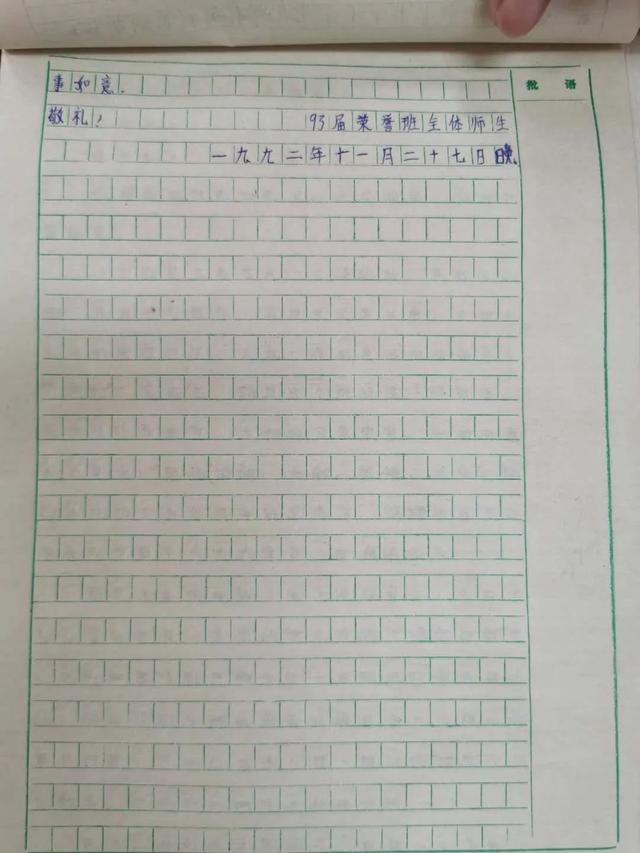 事如意.
批语
敬礼! 93届荣誉班全体师生
一九九二年十一月二十七日晚.